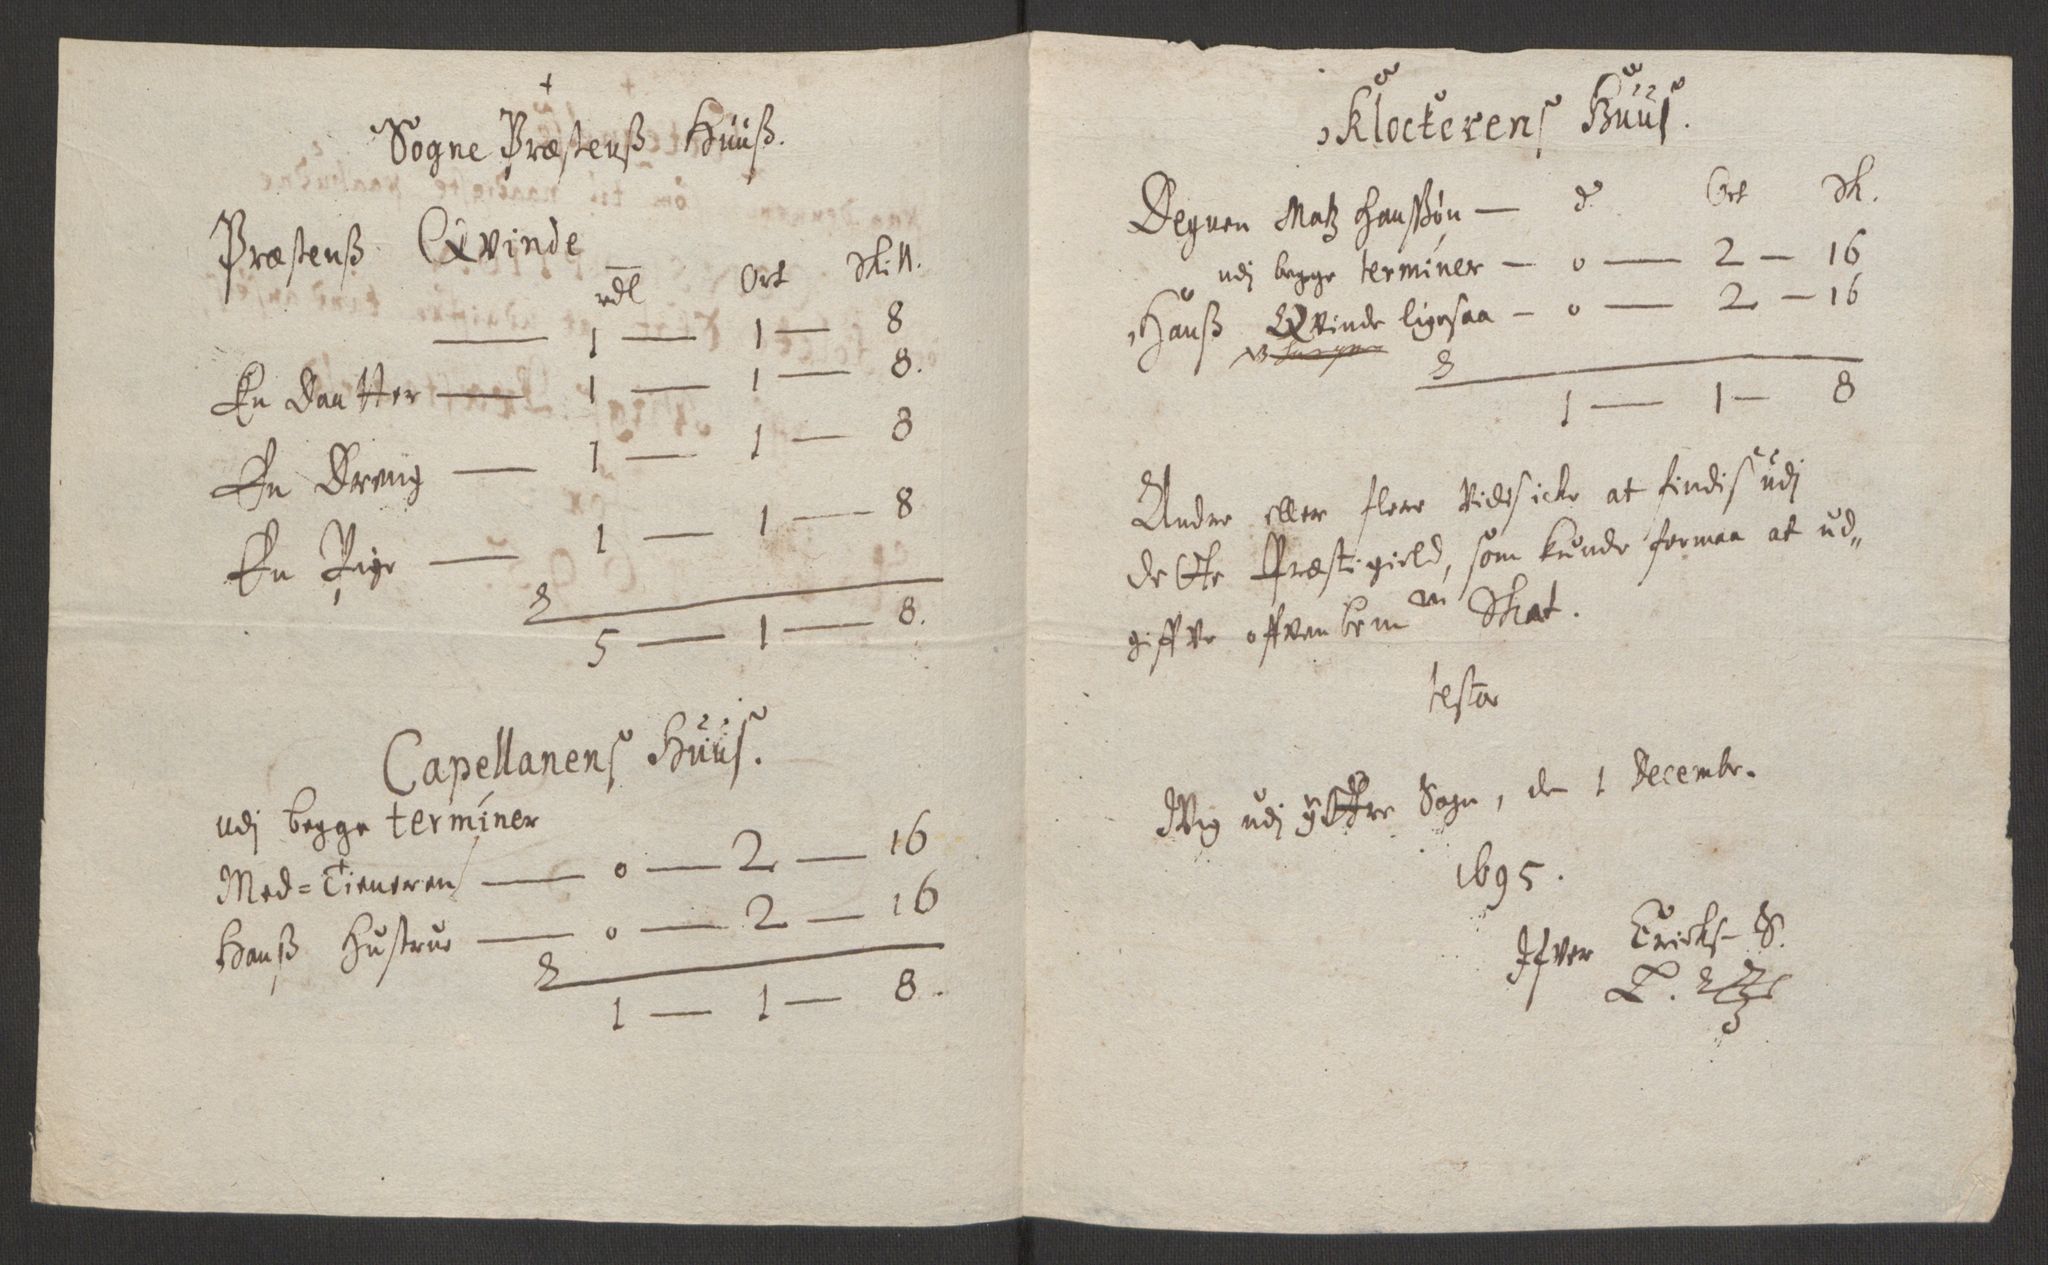 Sogne Præstenß Huuß.
Præstenß Qvinde
rdl Ort Skill.
— 1 — 1 — 8
En Daatter — 1 — 1 — 8.
En Dreng — 1 — 1 — 8
En Pige — 1 — 1 — 8
5 — 1 — 8.
Capellanens Huus.
udj begge terminer
Med=Tieneren — 0 — 2 — 16
Hanß Hustrue — 0 — 2 — 16
1 — 1 — 8.
Klockerens Huus.
Degnen Matz Hanßøn — d Ort Sk.
udj begge terminer — 0 — 2 — 16
Hanß Qvinde ligesaa — 0 — 2 — 16
1 — 1 — 8
Andre eller flere vides icke at findis udj
dette Præstegield, som kunde formaa at ud„
giffve offvenbem Skat.
testor
Wig udj Sogn, den 1 Decembr.
1695.
Ifver Ericks- S.